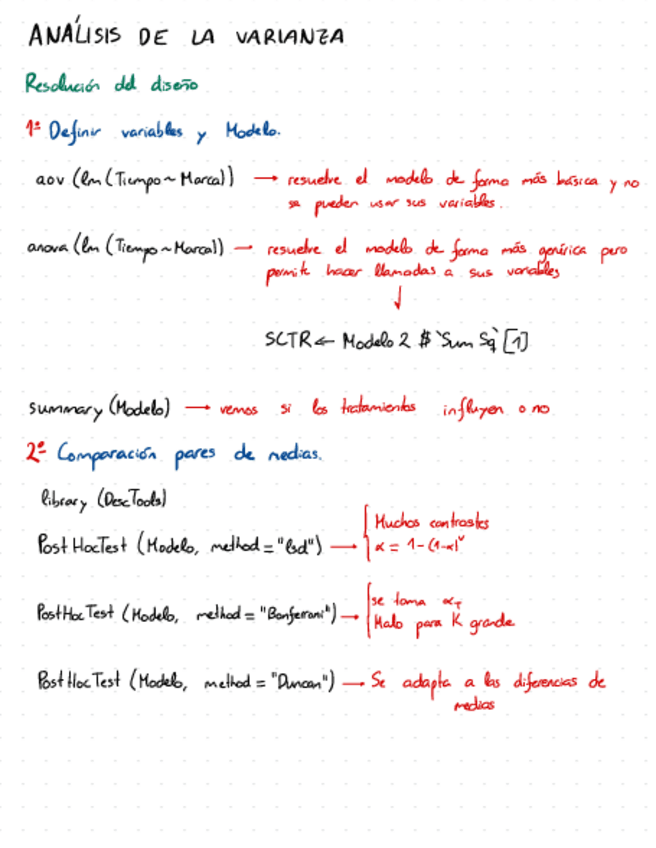 ANÁLISIS DE LA VARIANZA
Resolución del diseño
1º Definir variables y Modelo.
aov (lm (Tiempo ~ Marca)) → resuelve el modelo de forma más básica y no
se pueden usar sus variables.
anova (lm (Tiempo ~ Marca)) → resuelve el modelo de forma más genérica pero
permite hacer llamadas a sus variables
↓
SCTR ← Modelo 2 $ `Sum Sq` [1]
summary (Modelo) → vemos si los tratamientos influyen o no
2º Comparación pares de medias.
library (DescTools)
PostHocTest (Modelo, method = "lsd") → Muchos contrastes
α = 1-(1-α)ᵛ
PostHocTest (Modelo, method = "Bonferroni") → se toma α_T
Malo para K grande
PostHocTest (Modelo, method = "Duncan") → Se adapta a las diferencias de
medias